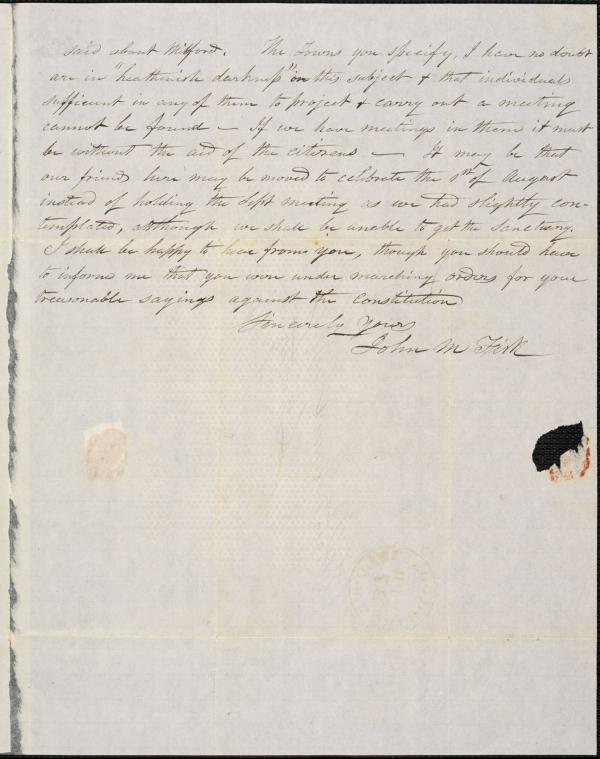 said about Milford. The Towns you specify, I have no doubt
are in "heathenish darkness" on this subject & that individuals
sufficient in any of them to project & carry out a meeting
cannot be found — If we have meetings in them it must
be without the aid of the citizens — It may be that
our friends here may be moved to celebrate the 1st of August
instead of holding the Sept meeting as we had slightly con-
templated, although we shall be unable to get the Sanctuary.
I shall be happy to hear from you, though you should have
to inform me that you were under marching orders for your
treasonable sayings against the Constitution
Sincerely Yours
John M Fisk